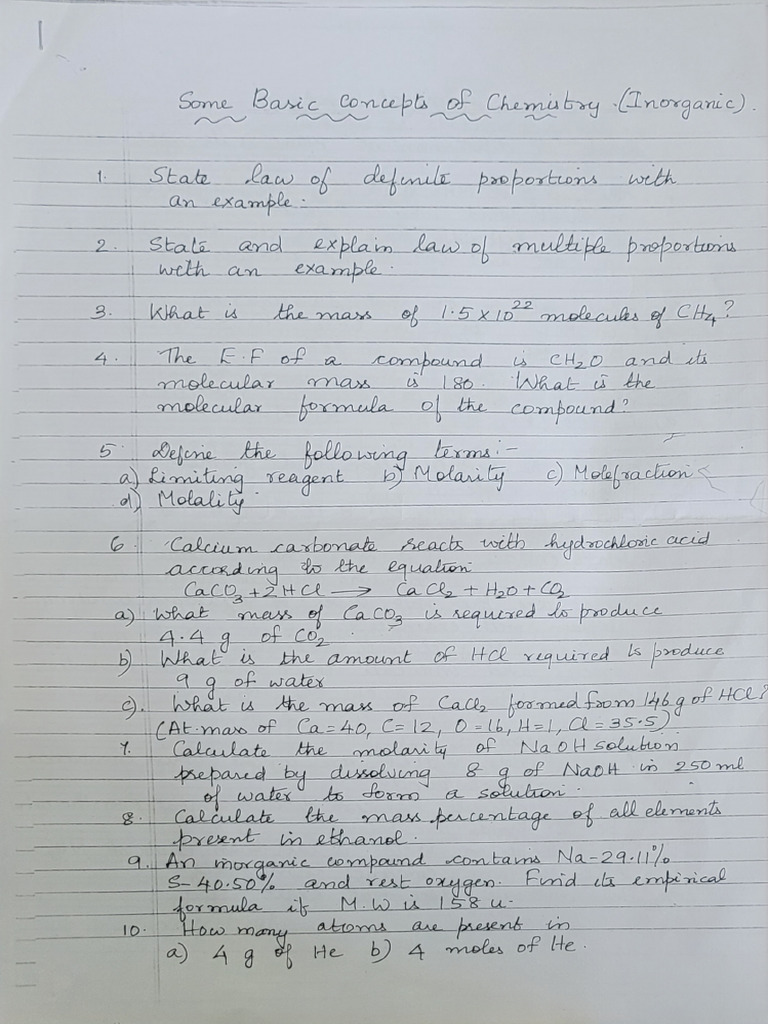 1
Some Basic Concepts of Chemistry (Inorganic).
1. State law of definite proportions with
an example.
2. State and explain law of multiple proportions
with an example.
3. What is the mass of 1.5 x 10²² molecules of CH₄?
4. The E.F of a compound is CH₂O and its
molecular mass is 180. What is the
molecular formula of the compound?
5. Define the following terms:-
a) Limiting reagent b) Molarity c) Molefraction
d) Molality
6. Calcium carbonate reacts with hydrochloric acid
according to the equation
CaCO₃ + 2HCl → CaCl₂ + H₂O + CO₂
a) What mass of CaCO₃ is required to produce
4.4 g of CO₂
b) What is the amount of HCl required to produce
9 g of water
c). What is the mass of CaCl₂ formed from 146g of HCl?
(At.mass of Ca=40, C=12, O=16, H=1, Cl=35.5)
7. Calculate the molarity of NaOH solution
prepared by dissolving 8 g of NaOH in 250 ml
of water to form a solution.
8. Calculate the mass percentage of all elements
present in ethanol.
9. An inorganic compound contains Na-29.11%
S-40.50% and rest oxygen. Find its empirical
formula if M.W is 158 u.
10. How many atoms are present in
a) 4 g of He b) 4 moles of He.